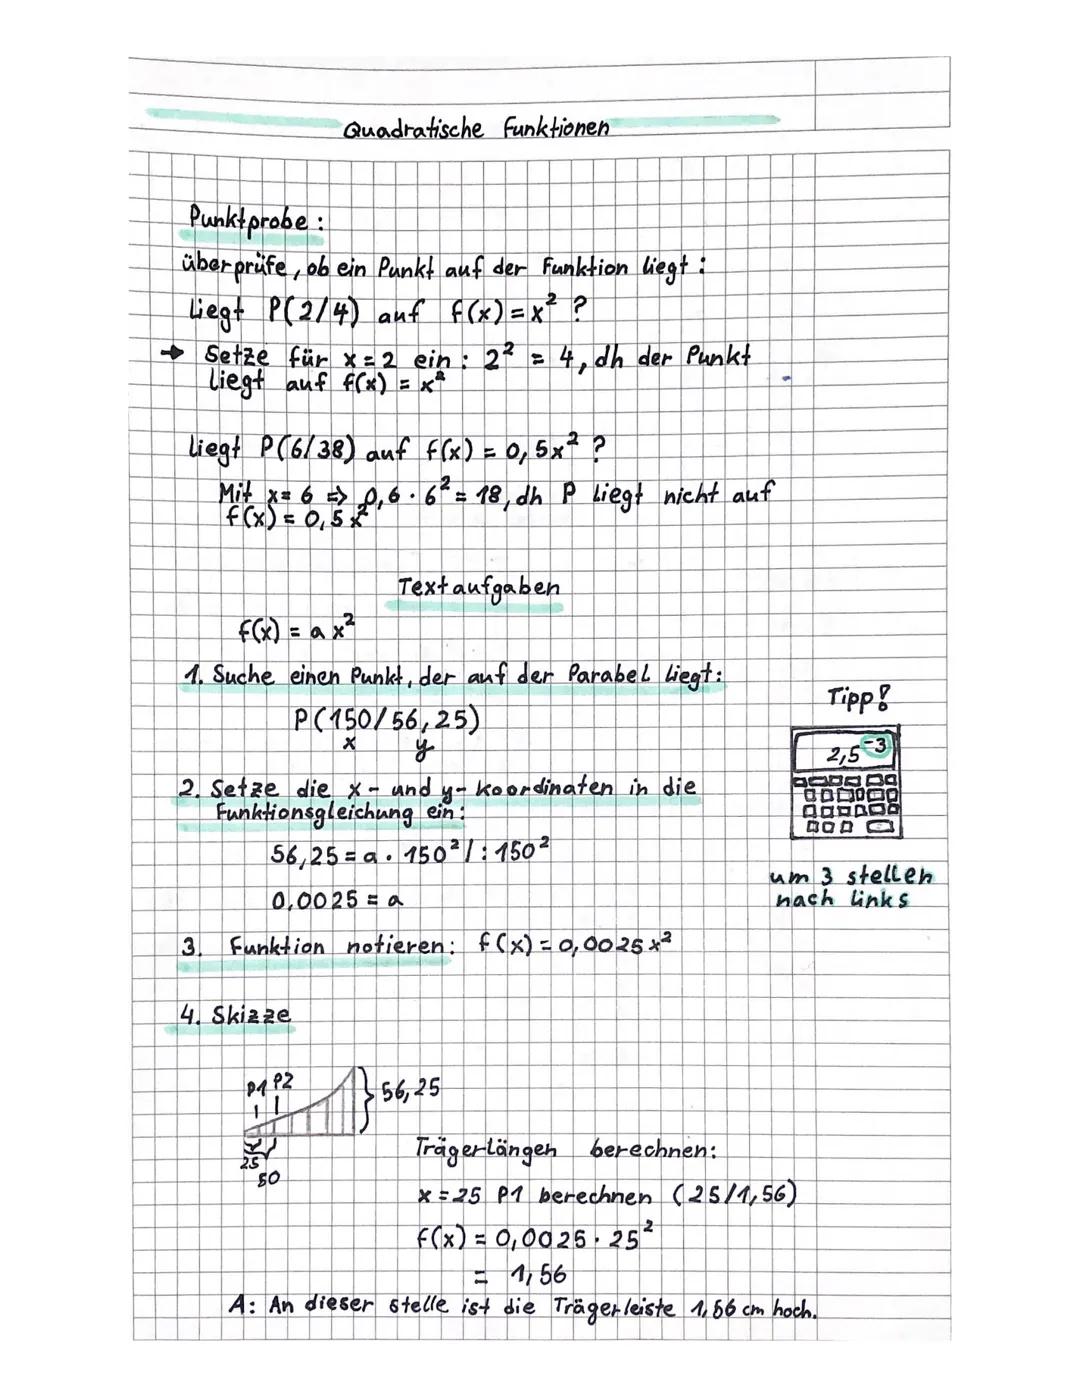 Quadratische Funktionen
Punktprobe:
überprüfe, ob ein Punkt auf der Funktion liegt:
Liegt P(2/4) auf f(x) = x² ?
→ Setze für x = 2 ein: 2² = 4, dh der Punkt
liegt auf f(x) = x²
Liegt P(6/38) auf f(x) = 0,5x² ?
Mit x = 6 => 0,6 · 6² = 18, dh P liegt nicht auf
f(x) = 0,5x²
Textaufgaben
f(x) = ax²
1. Suche einen Punkt, der auf der Parabel liegt:
P(150/56,25)
x y
2. Setze die x- und y-Koordinaten in die
Funktionsgleichung ein:
56,25 = a · 150² / : 150²
0,0025 = a
3. Funktion notieren: f(x) = 0,0025x²
Tipp!
2,5⁻³
um 3 stellen
nach links
4. Skizze
P1 P2
56,25
25
50
Trägerlängen berechnen:
x = 25 P1 berechnen (25/1,56)
f(x) = 0,0025 · 25²
= 1,56
A: An dieser stelle ist die Trägerleiste 1,56 cm hoch.